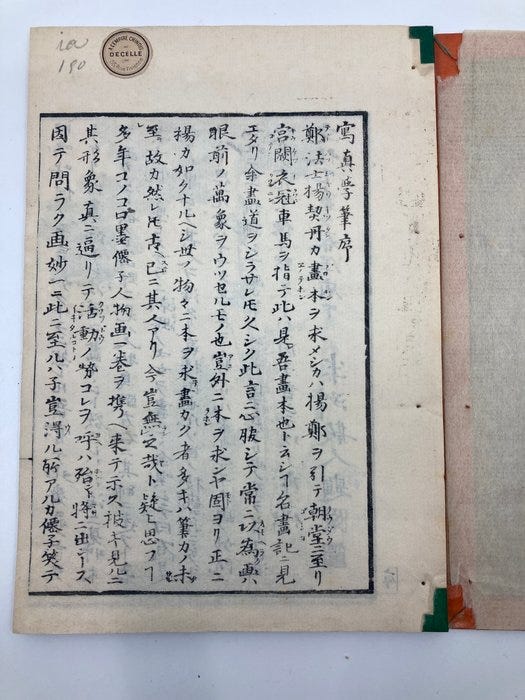 寫真学筆序
鄭法士揚契丹カ畫本ヲ求メシカハ揚鄭ヲ引テ朝堂ニ至リ
宮闕衣冠車馬ヲ指テ此ハ是吾畫本也ト云シ了名畫記ニ見
エタリ余盡道ヲシラサレモ久シク此言ニ心服シテ常ニ以為画ハ
眼前ノ萬象ヲウツセルモノ也豈外ニ本ヲ求ンヤ固ヨリ正ニ
揚カ如クナルヘシ世ノ物々ニ本ヲ求畫カク者多キハ筆カノ未
至故カ然レモ古已ニ其人アリ今豈無之哉ト疑ヒ思フ
多年コノコロ墨僊子人物画一巻ヲ携ヘ来テ示ス披キ見ルニ
其形象真ニ逼リテ活動ノ勢コレヲ呼ハ殆ト将ニ出ントス
因テ問ラク画妙一ニ此ニ至ルハ子豈得ル所アルカ僊子笑テ
190
A L'EMPIRE CHINOIS
DECELLE